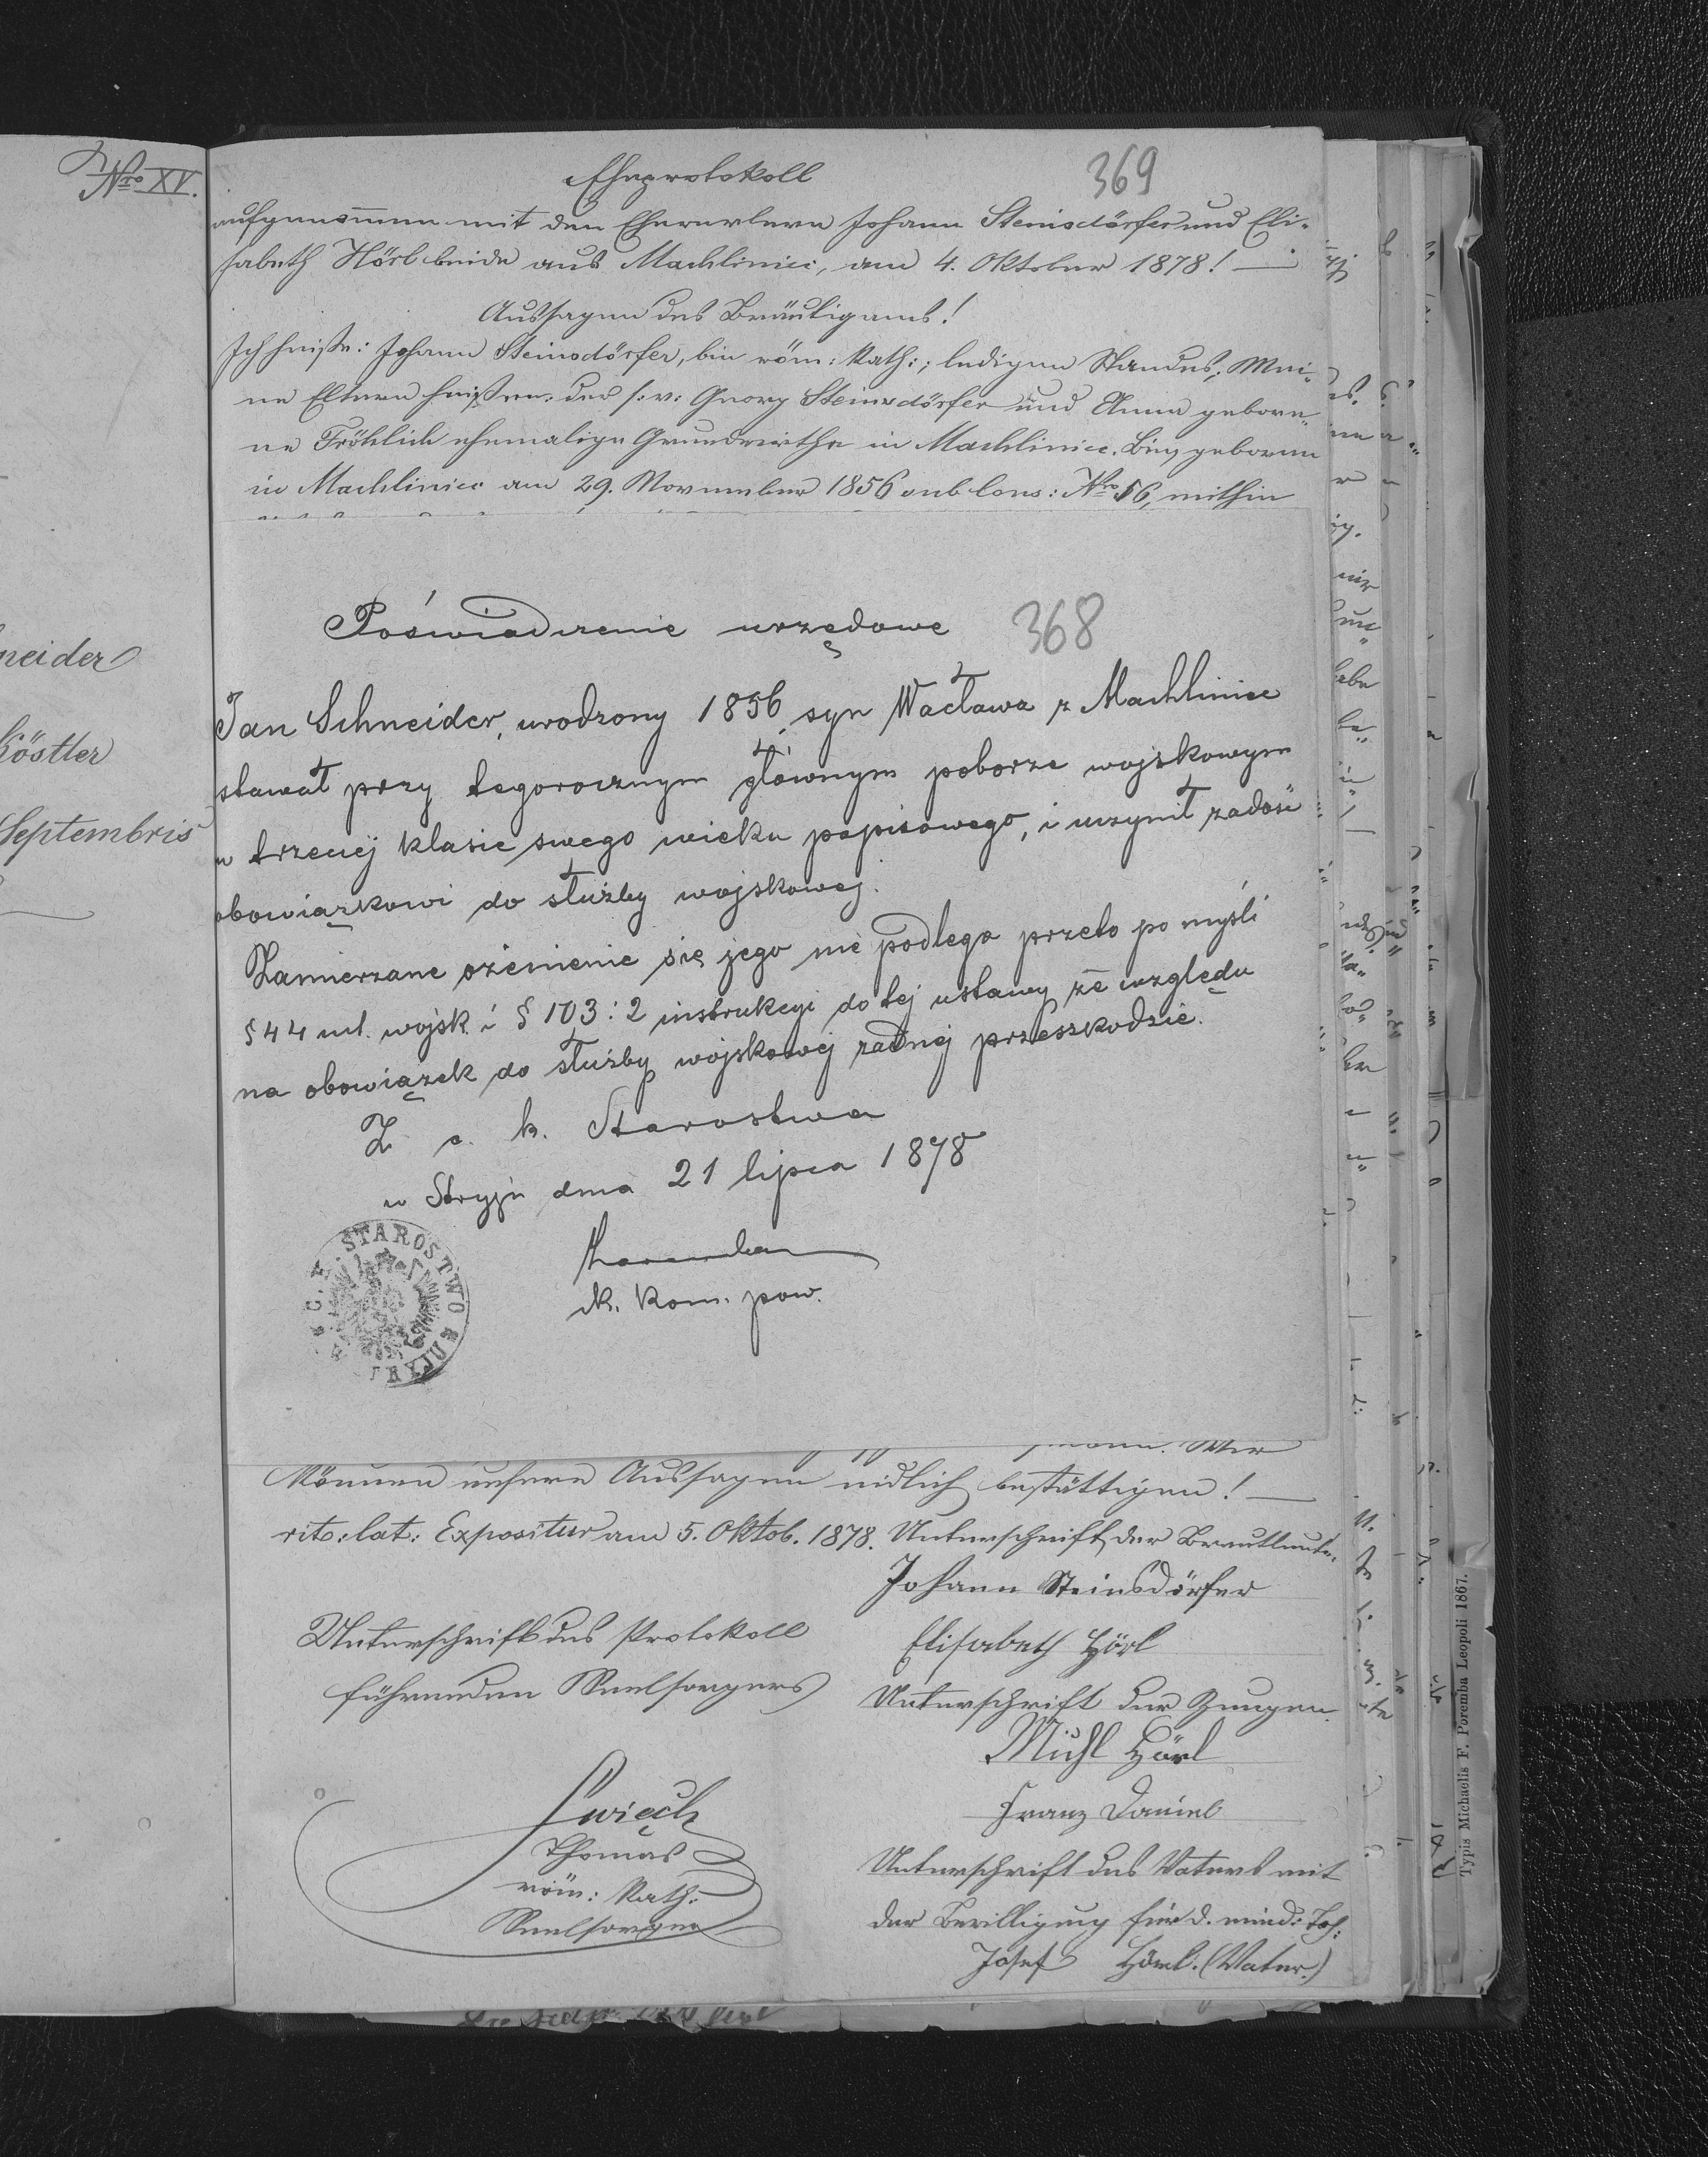 Nro XV.
neider
Köstler
Septembris
Eheprotokoll
369
aufgenommen mit den Ehewerbern Johann Steinsdörfer und Eli-
sabeth Hörl beide aus Machlinice, am 4. Oktober 1878! —
Aussagen des Bräutigams!
Ich heiße: Johann Steinsdörfer, bin röm: kath:; ledigen Standes; Mei-
ne Eltern heißen: der s: v: Georg Steinsdörfer und Anna gebore-
ne Fröhlich ehemalige Grundwirthe in Machlinice. Bin geboren
in Machlinice am 29. November 1856 sub Cons: Nro 56, mithin
Poświadczenie urzędowe
368
Jan Schneider, urodzony 1856, syn Wacława z Machliniec
stawał przy tegorocznym głównym poborze wojskowym
w trzeciej klasie swego wieku popisowego, i uczynił zadość
obowiązkowi do służby wojskowej.
Zamierzane ożenienie się jego nie podlega przeto po myśli
§ 44 ust. wojsk. i § 103: 2 instrukcyi do tej ustawy ze względu
na obowiązek do służby wojskowej żadnej przeszkodzie.
Z c. k. Starostwa
w Stryju dnia 21 lipca 1878
ck. kom. pow.
C. K. STAROSTWO W STRYJU
Wir
können unsere Aussagen eidlich bestättigen! —
rit: lat: Expositur am 5. Oktob. 1878.
Unterschrift der Brautleute.
Johann Steinsdörfer
Unterschrift des Protokoll
Elisabeth Hörl
führenden Seelsorgers
Unterschrift der Zeugen
Michl Hörl
Świech
Franz Daniel
Thomas
röm: Kath:
Seelsorger
Unterschrift des Vaters mit
der Bewilligung für d. mind: Toch:
Josef Hörl. (Vater.)
Typis Michaelis F. Poremba Leopoli 1867.